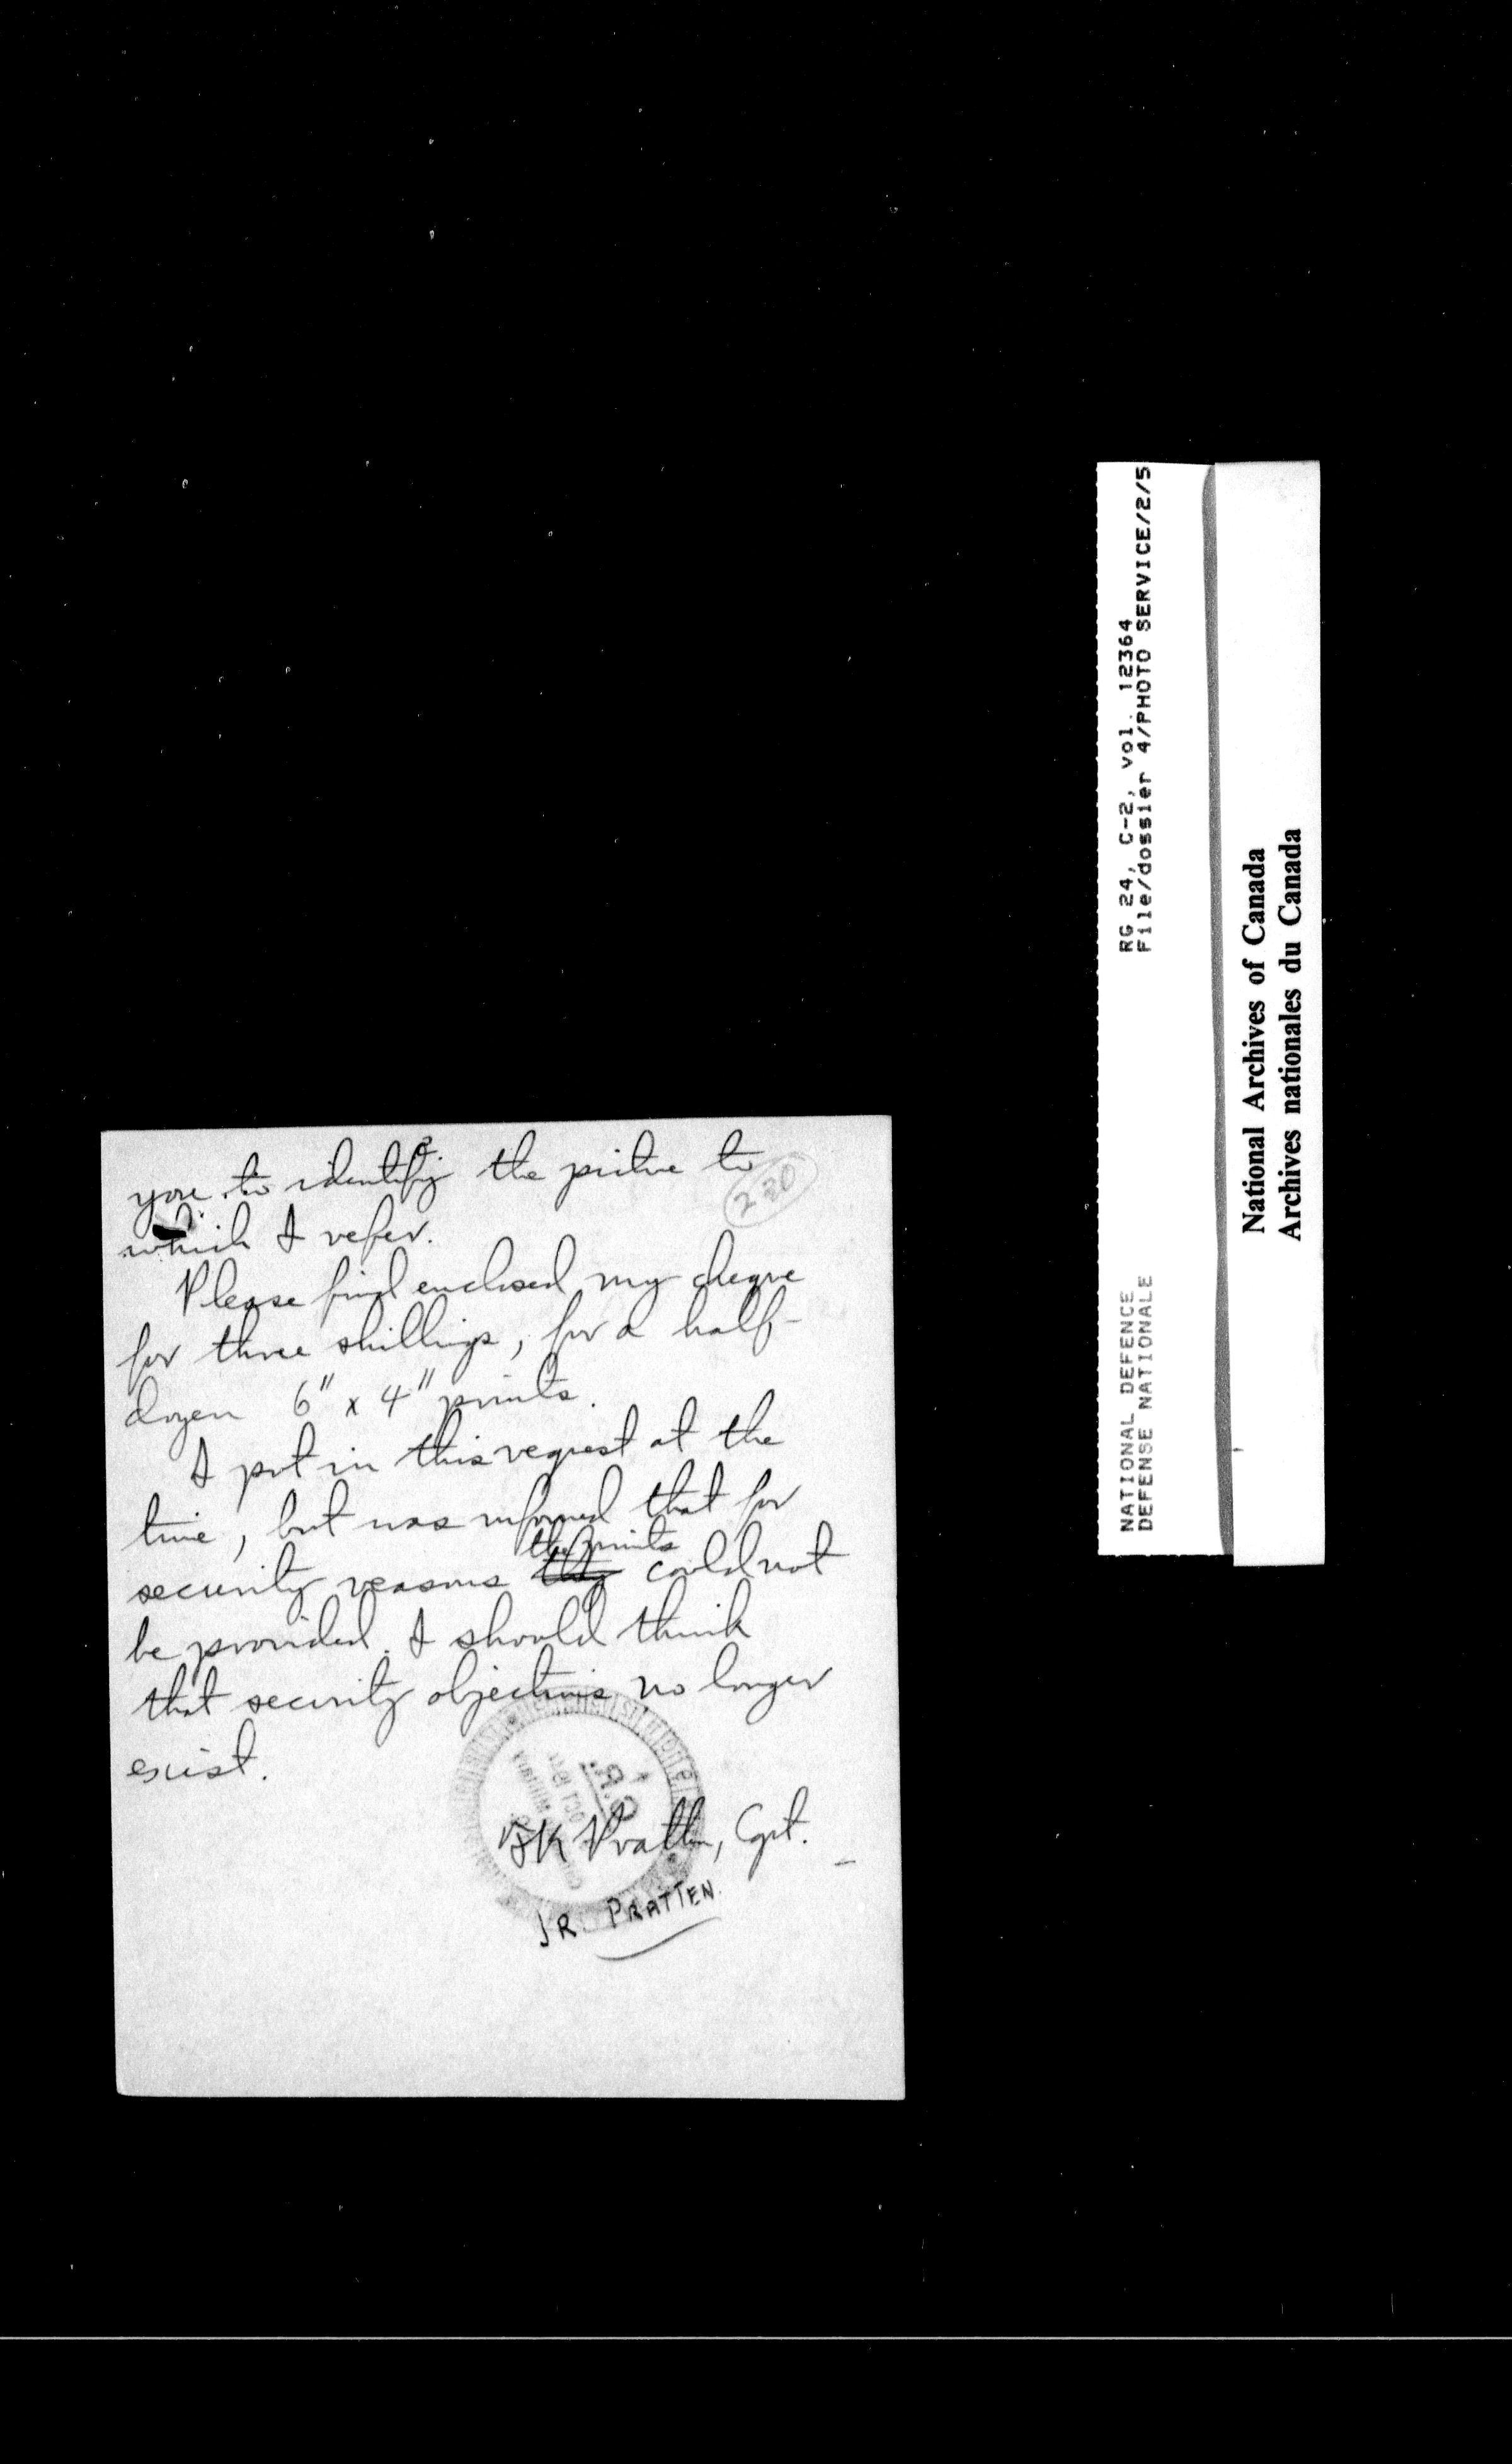 you to identify the picture to
220
which I refer.
Please find enclosed my cheque
for three shillings, for a half-
dozen 6" x 4" prints.
I put in this request at the
time, but was informed that for
the prints
security reasons they could not
be provided. I should think
that security objections no longer
exist.
JR Pratten, Capt.
JR. PRATTEN.
C.R.
OCT
RG 24, C-2, vol. 12364
File/dossier 4/PHOTO SERVICE/2/5
NATIONAL DEFENCE
DEFENSE NATIONALE
National Archives of Canada
Archives nationales du Canada